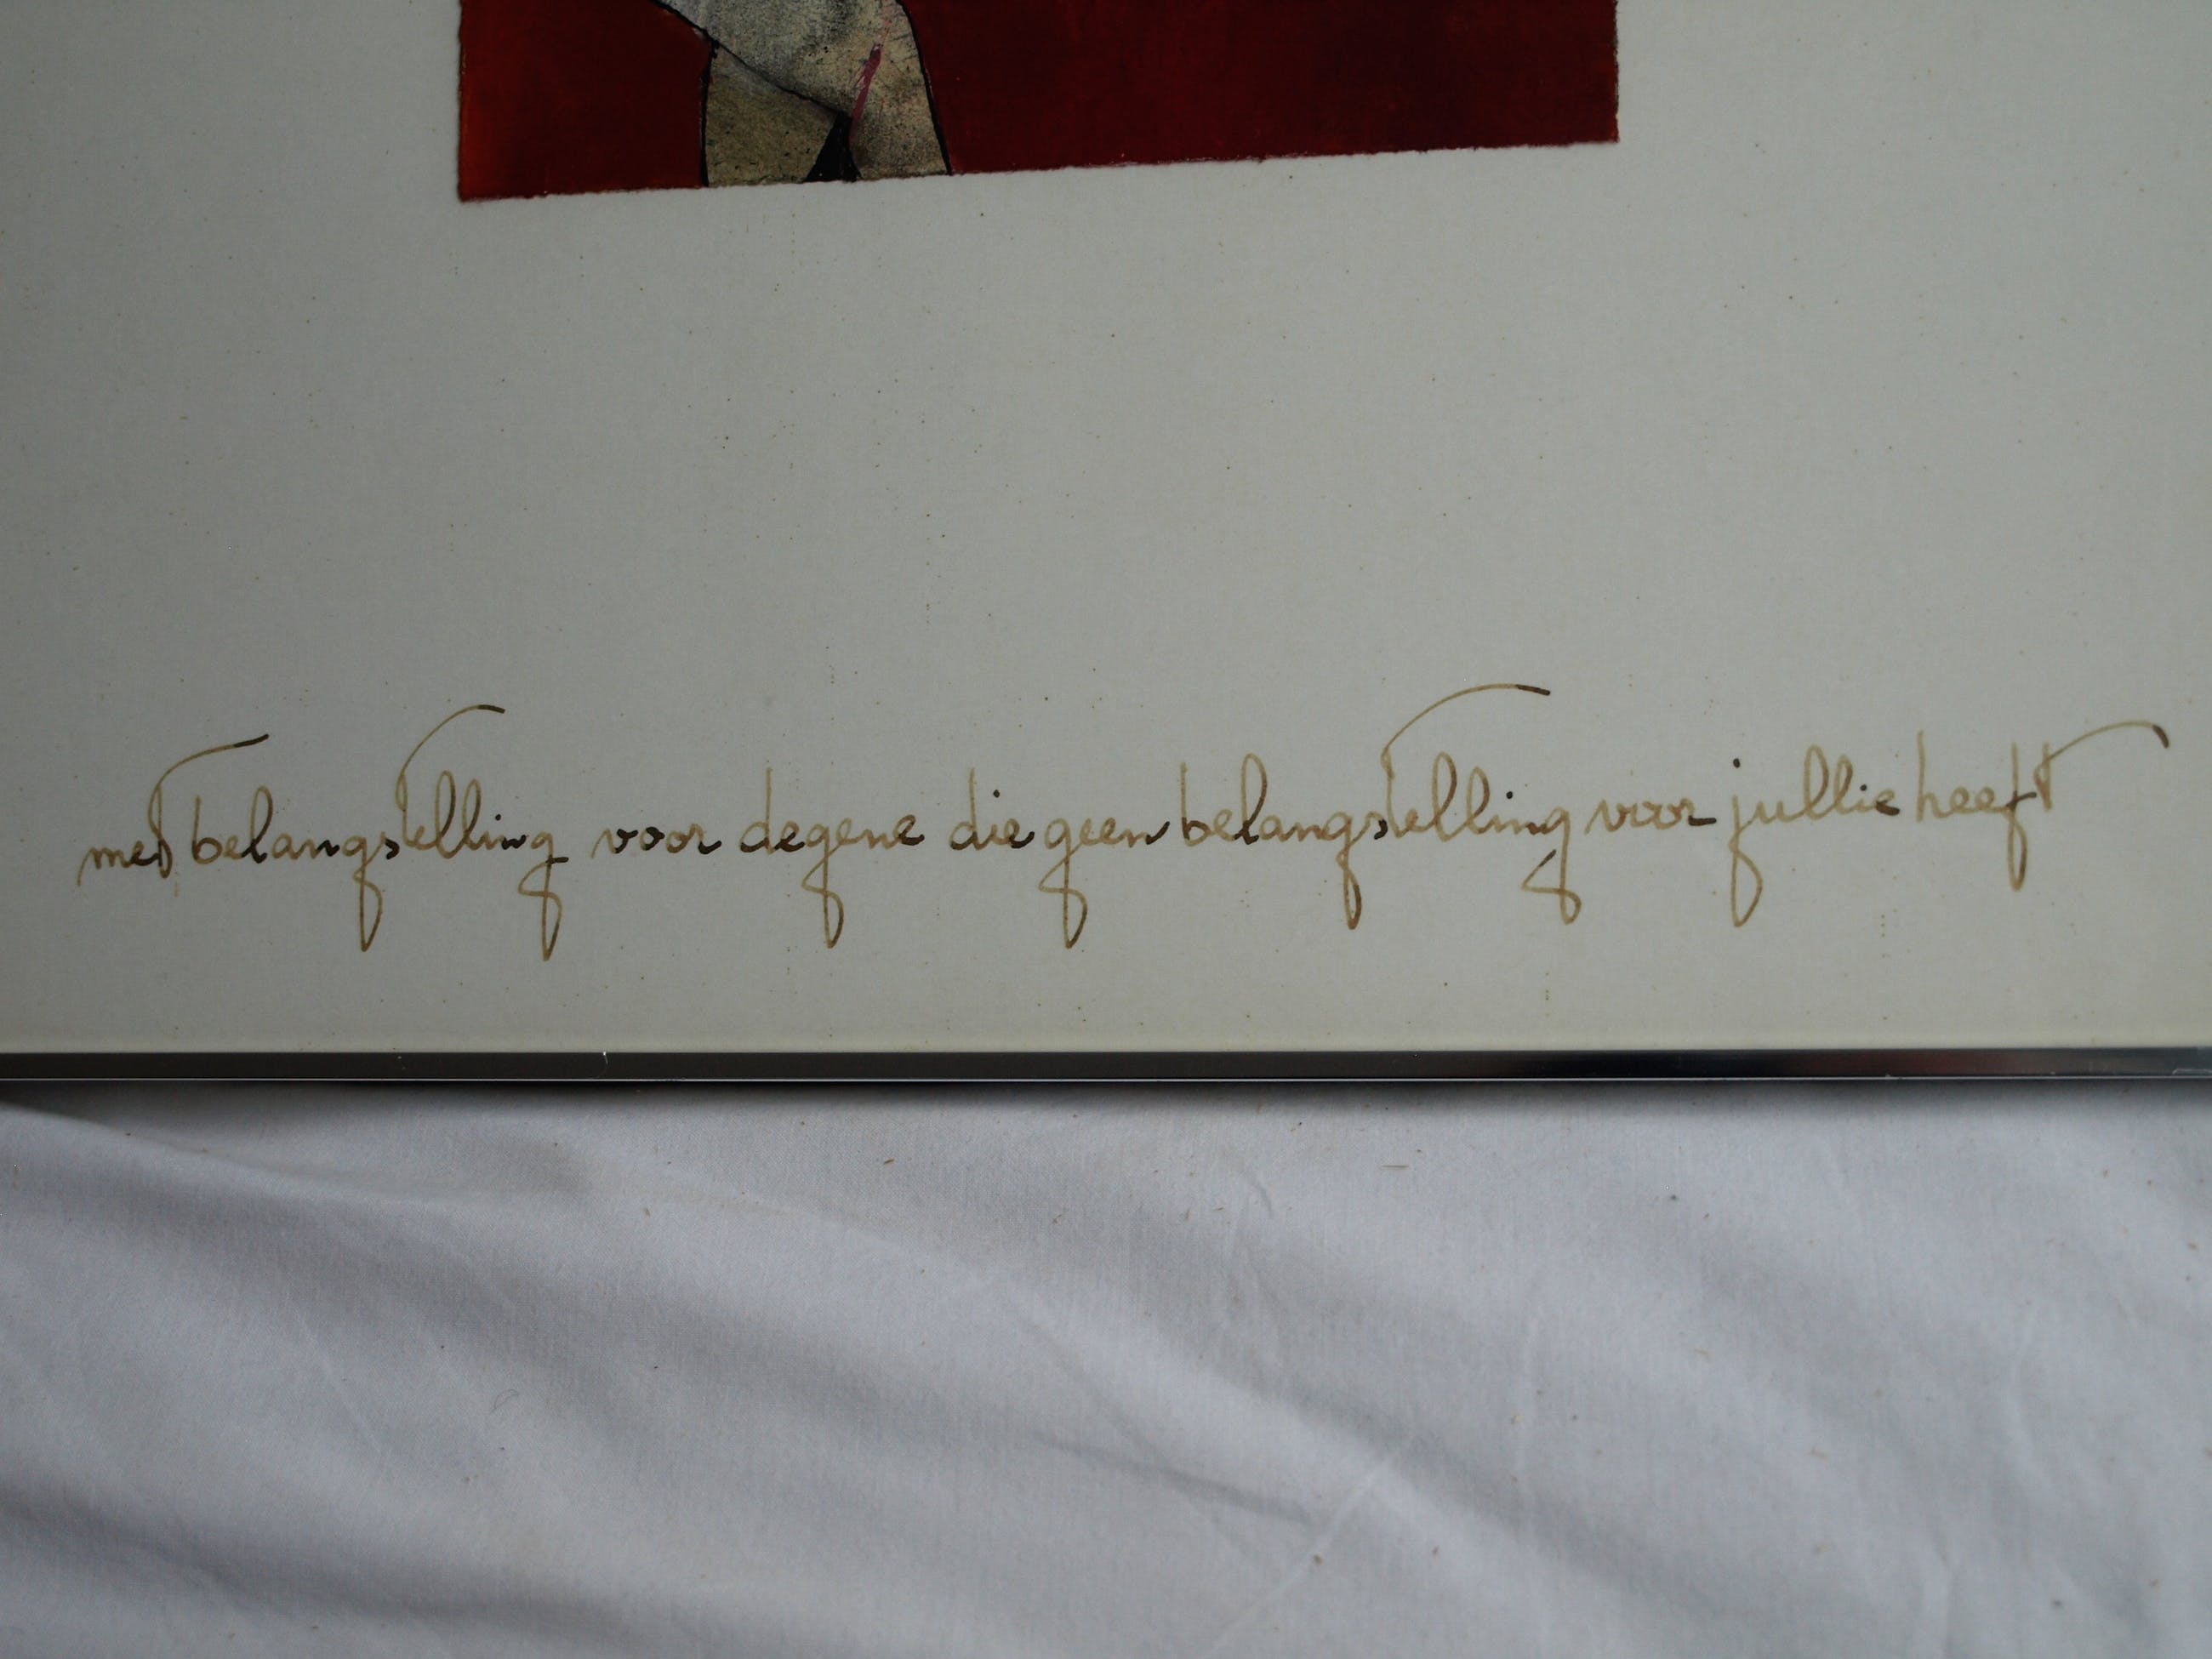 met belangstelling voor degene die geen belangstelling voor jullie heeft